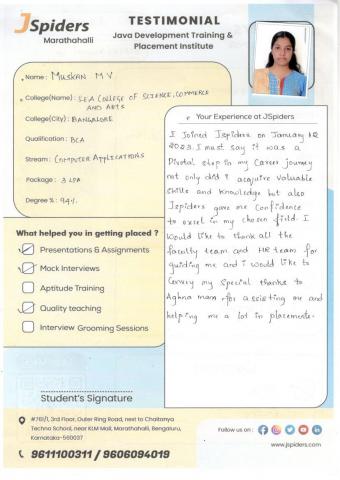 JSpiders
Marathahalli
TESTIMONIAL
Java Development Training &
Placement Institute
Name : MUSKAN M V
College(Name) : SEA COLLEGE OF SCIENCE, COMMERCE
AND ARTS
College(City) : BANGALORE
Qualification : BCA
Stream : COMPUTER APPLICATIONS
Package : 3 LPA
Degree % : 94%
Your Experience at JSpiders
I Joined Jspiders on January 12
2023. I must say it was a
Pivotal step in my career journey
not only did I acquire valuable
skills and knowledge but also
Jspiders gave me Confidence
to excel in my chosen field. I
would like to thank all the
faculty team and HR team for
guiding me and i would like to
Convey my special thanks to
Aghna mam for assisting me and
helping me a lot in placements.
What helped you in getting placed ?
Presentations & Assignments
Mock Interviews
Aptitude Training
Quality teaching
Interview Grooming Sessions
Student's Signature
#761/1, 3rd Floor, Outer Ring Road, next to Chaitanya
Techno School, near KLM Mall, Marathahalli, Bengaluru,
Karnataka-560037
9611100311 / 9606094019
Follow us on :
www.jspiders.com